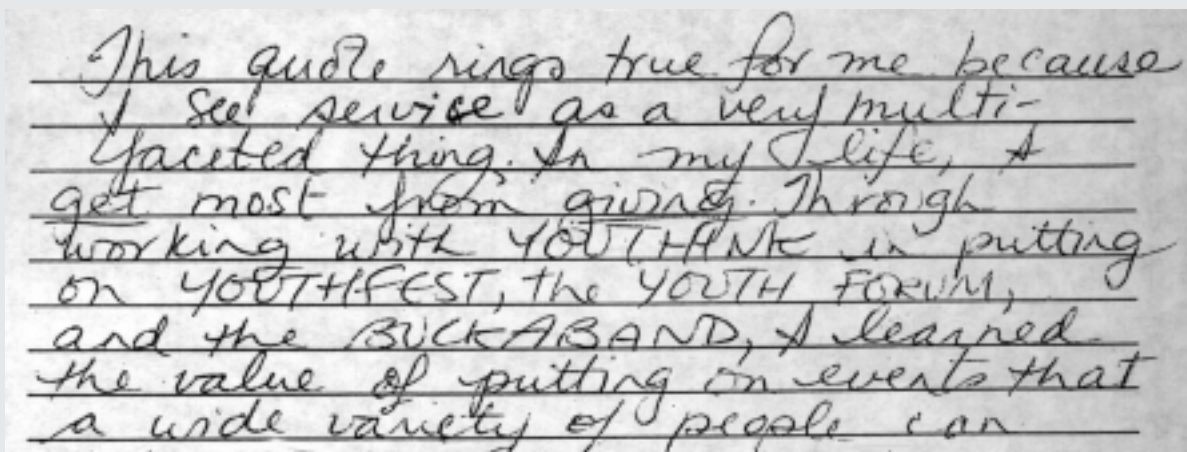 This quote rings true for me because
I see service as a very multi-
faceted thing. In my life, I
get most from giving. Through
working with YOUTHINK in putting
on YOUTHFEST, the YOUTH FORUM,
and the BUCKABAND, I learned
the value of putting on events that
a wide variety of people can